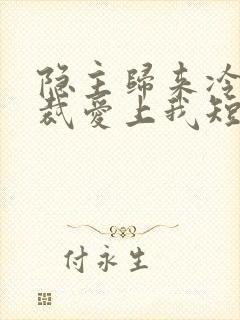 隐主歸来冷
裁愛上我短
付永生